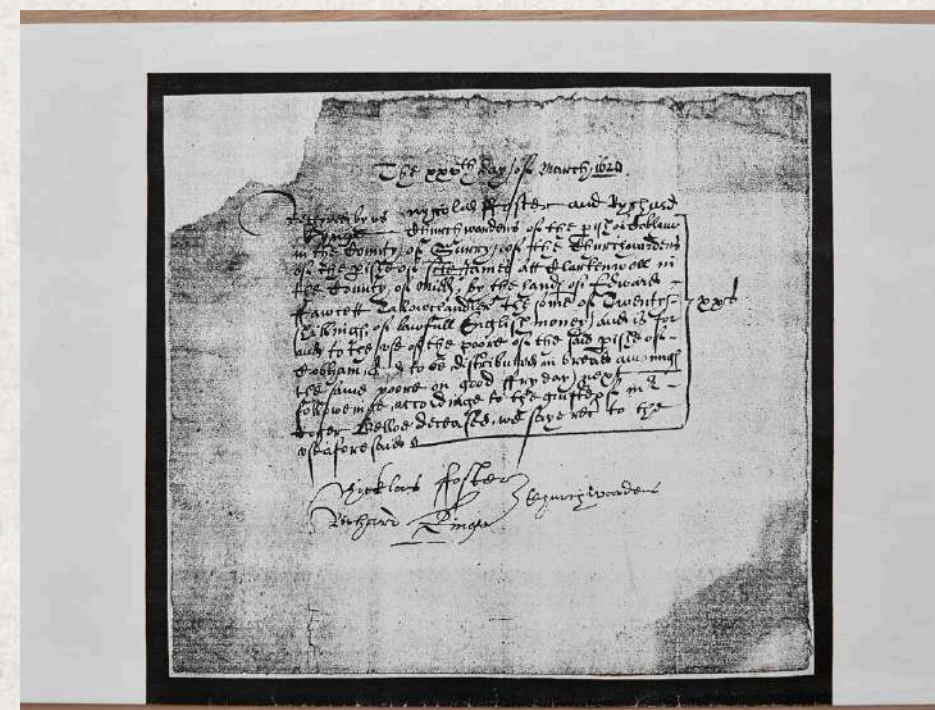 The xxvth day of March, 1624.
Receyved by us Nycolas ffoster and Rychard
Kynge Churchwardens of the pish of Cobham
in the County of Surry, of the Churchwardens
of the pishe of Sct James att Clarkenwell in
the County of Midd, by the hand of Edward
ffawcett Tallowchandler the some of Twenty
shillings of lawfull English money, and is for
and to the use of the poore of the said pishe of
Cobham, & to be distributed in bread amongst
the same poore on good ffryday next
followeinge, accordinge to the guift of m r
Roger deceased, we saye rec to the
use aforesaid
xxs
Nicklas ffoster
Richard Kinge
Churchwardens